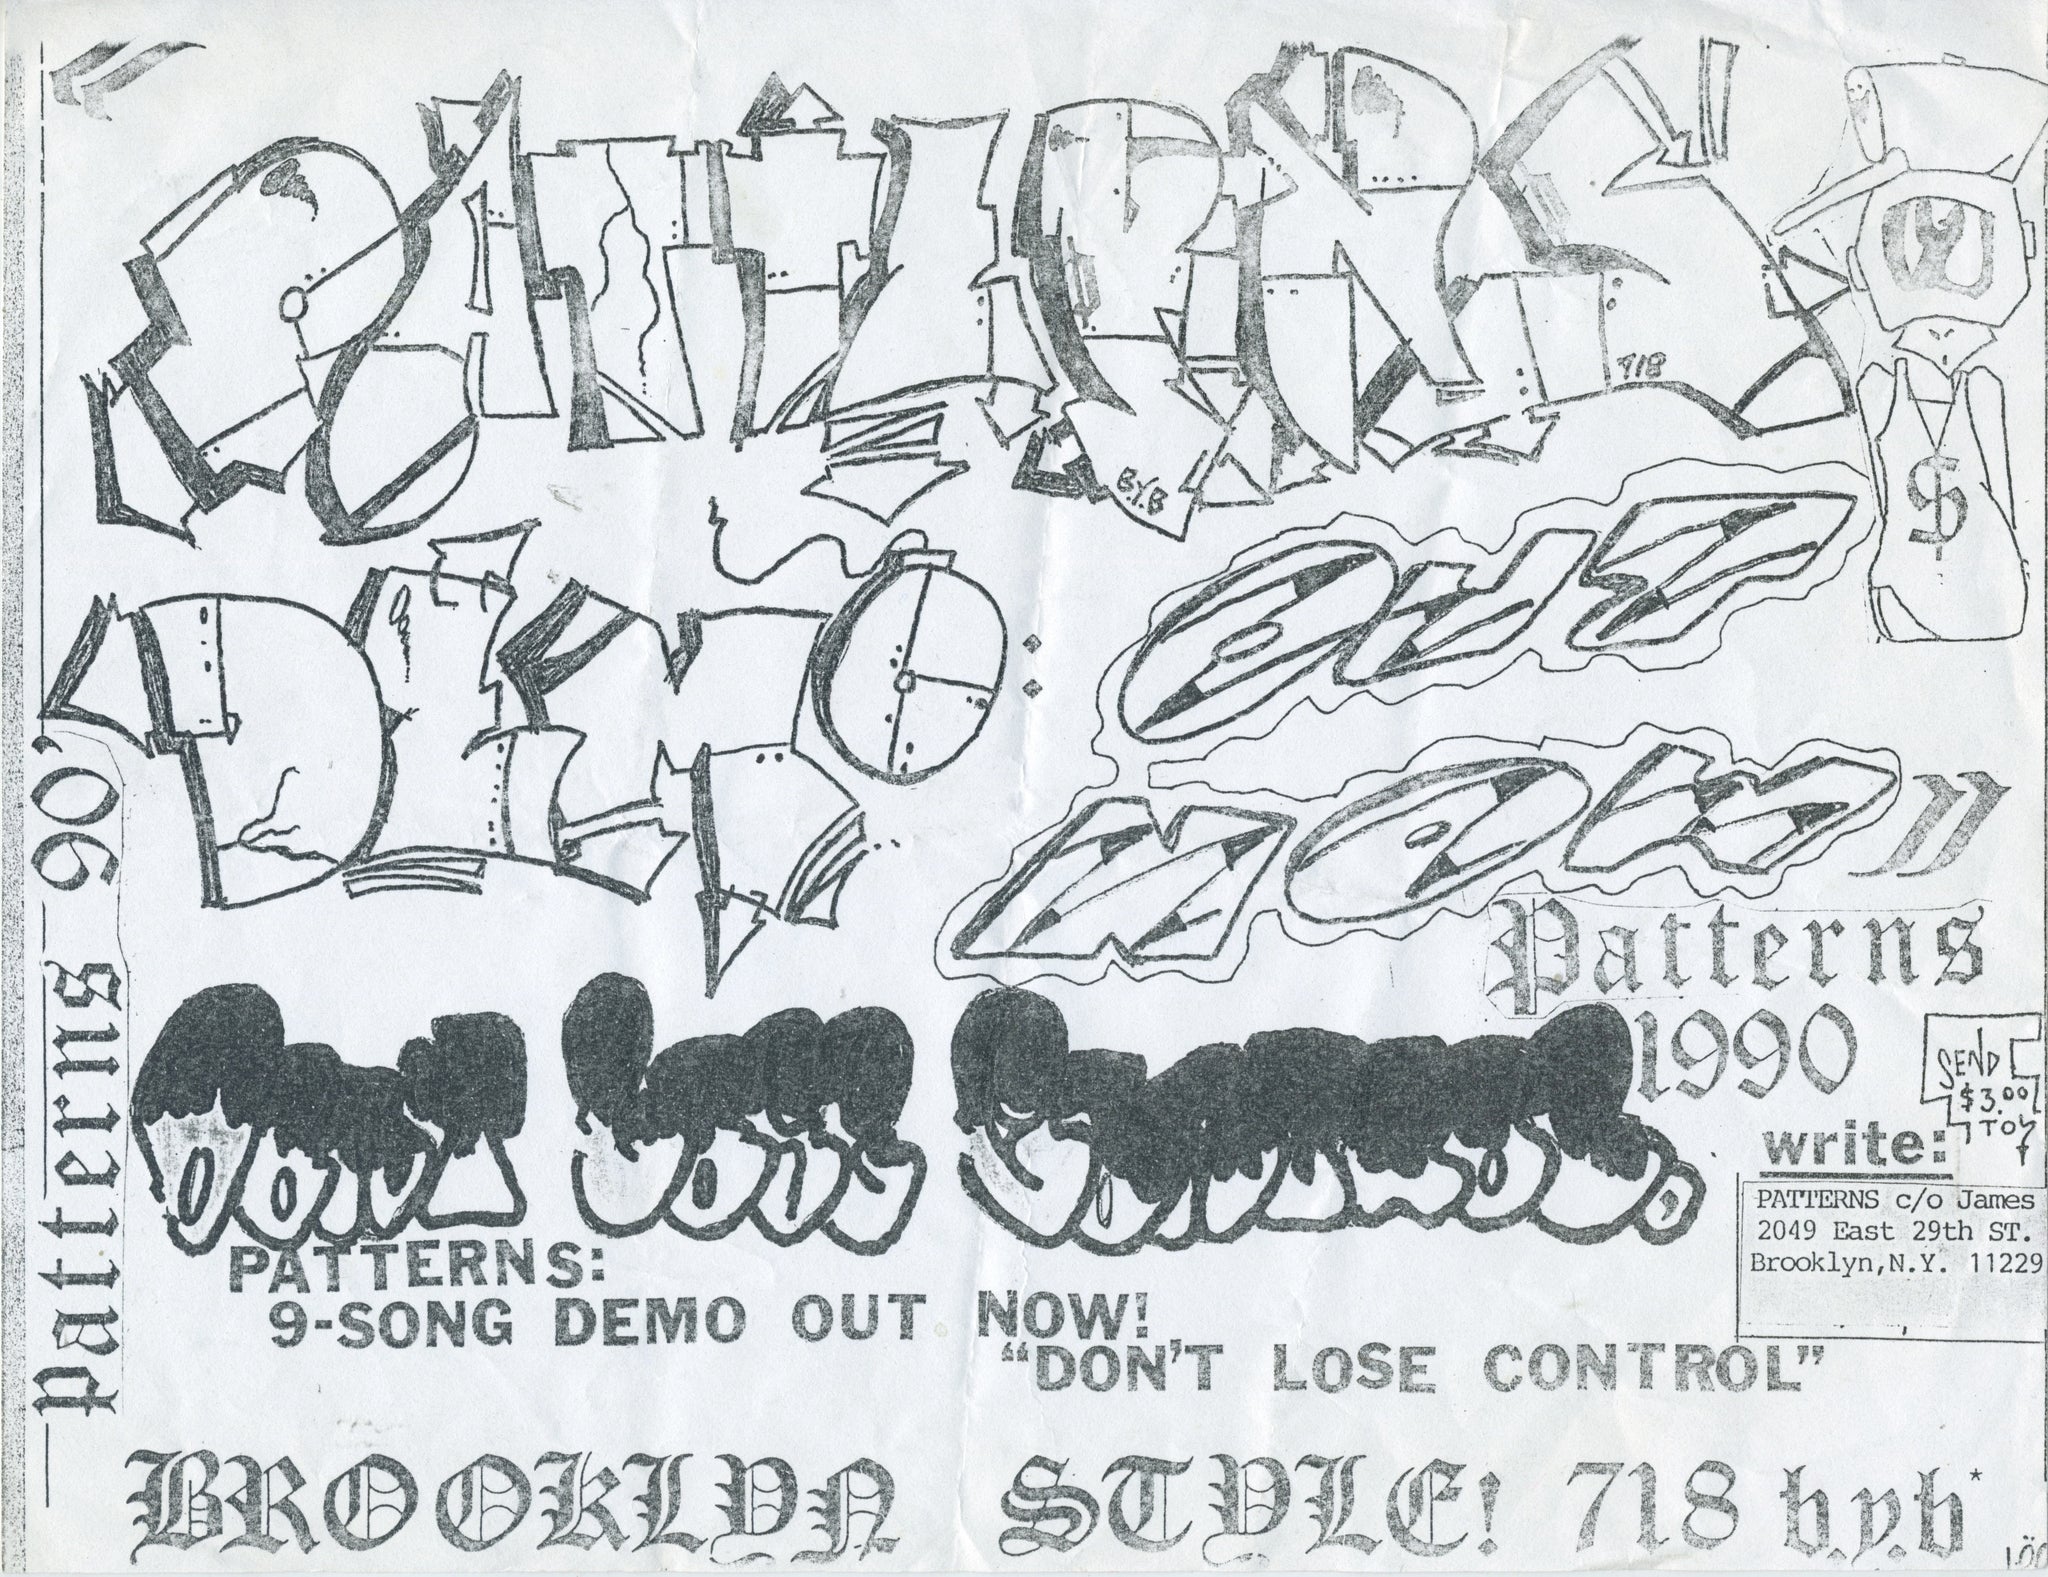 "PATTERNS
718
B.Y.B
$
DEMO:
OUT
NOW"
Patterns 90'
Patterns
1990
SEND
$3.00
TO
write:
PATTERNS c/o James
2049 East 29th ST.
Brooklyn,N.Y. 11229
DON'T LOSE CONTROL
PATTERNS:
9-SONG DEMO OUT NOW!
"DON'T LOSE CONTROL"
BROOKLYN STYLE! 718 b.y.b*